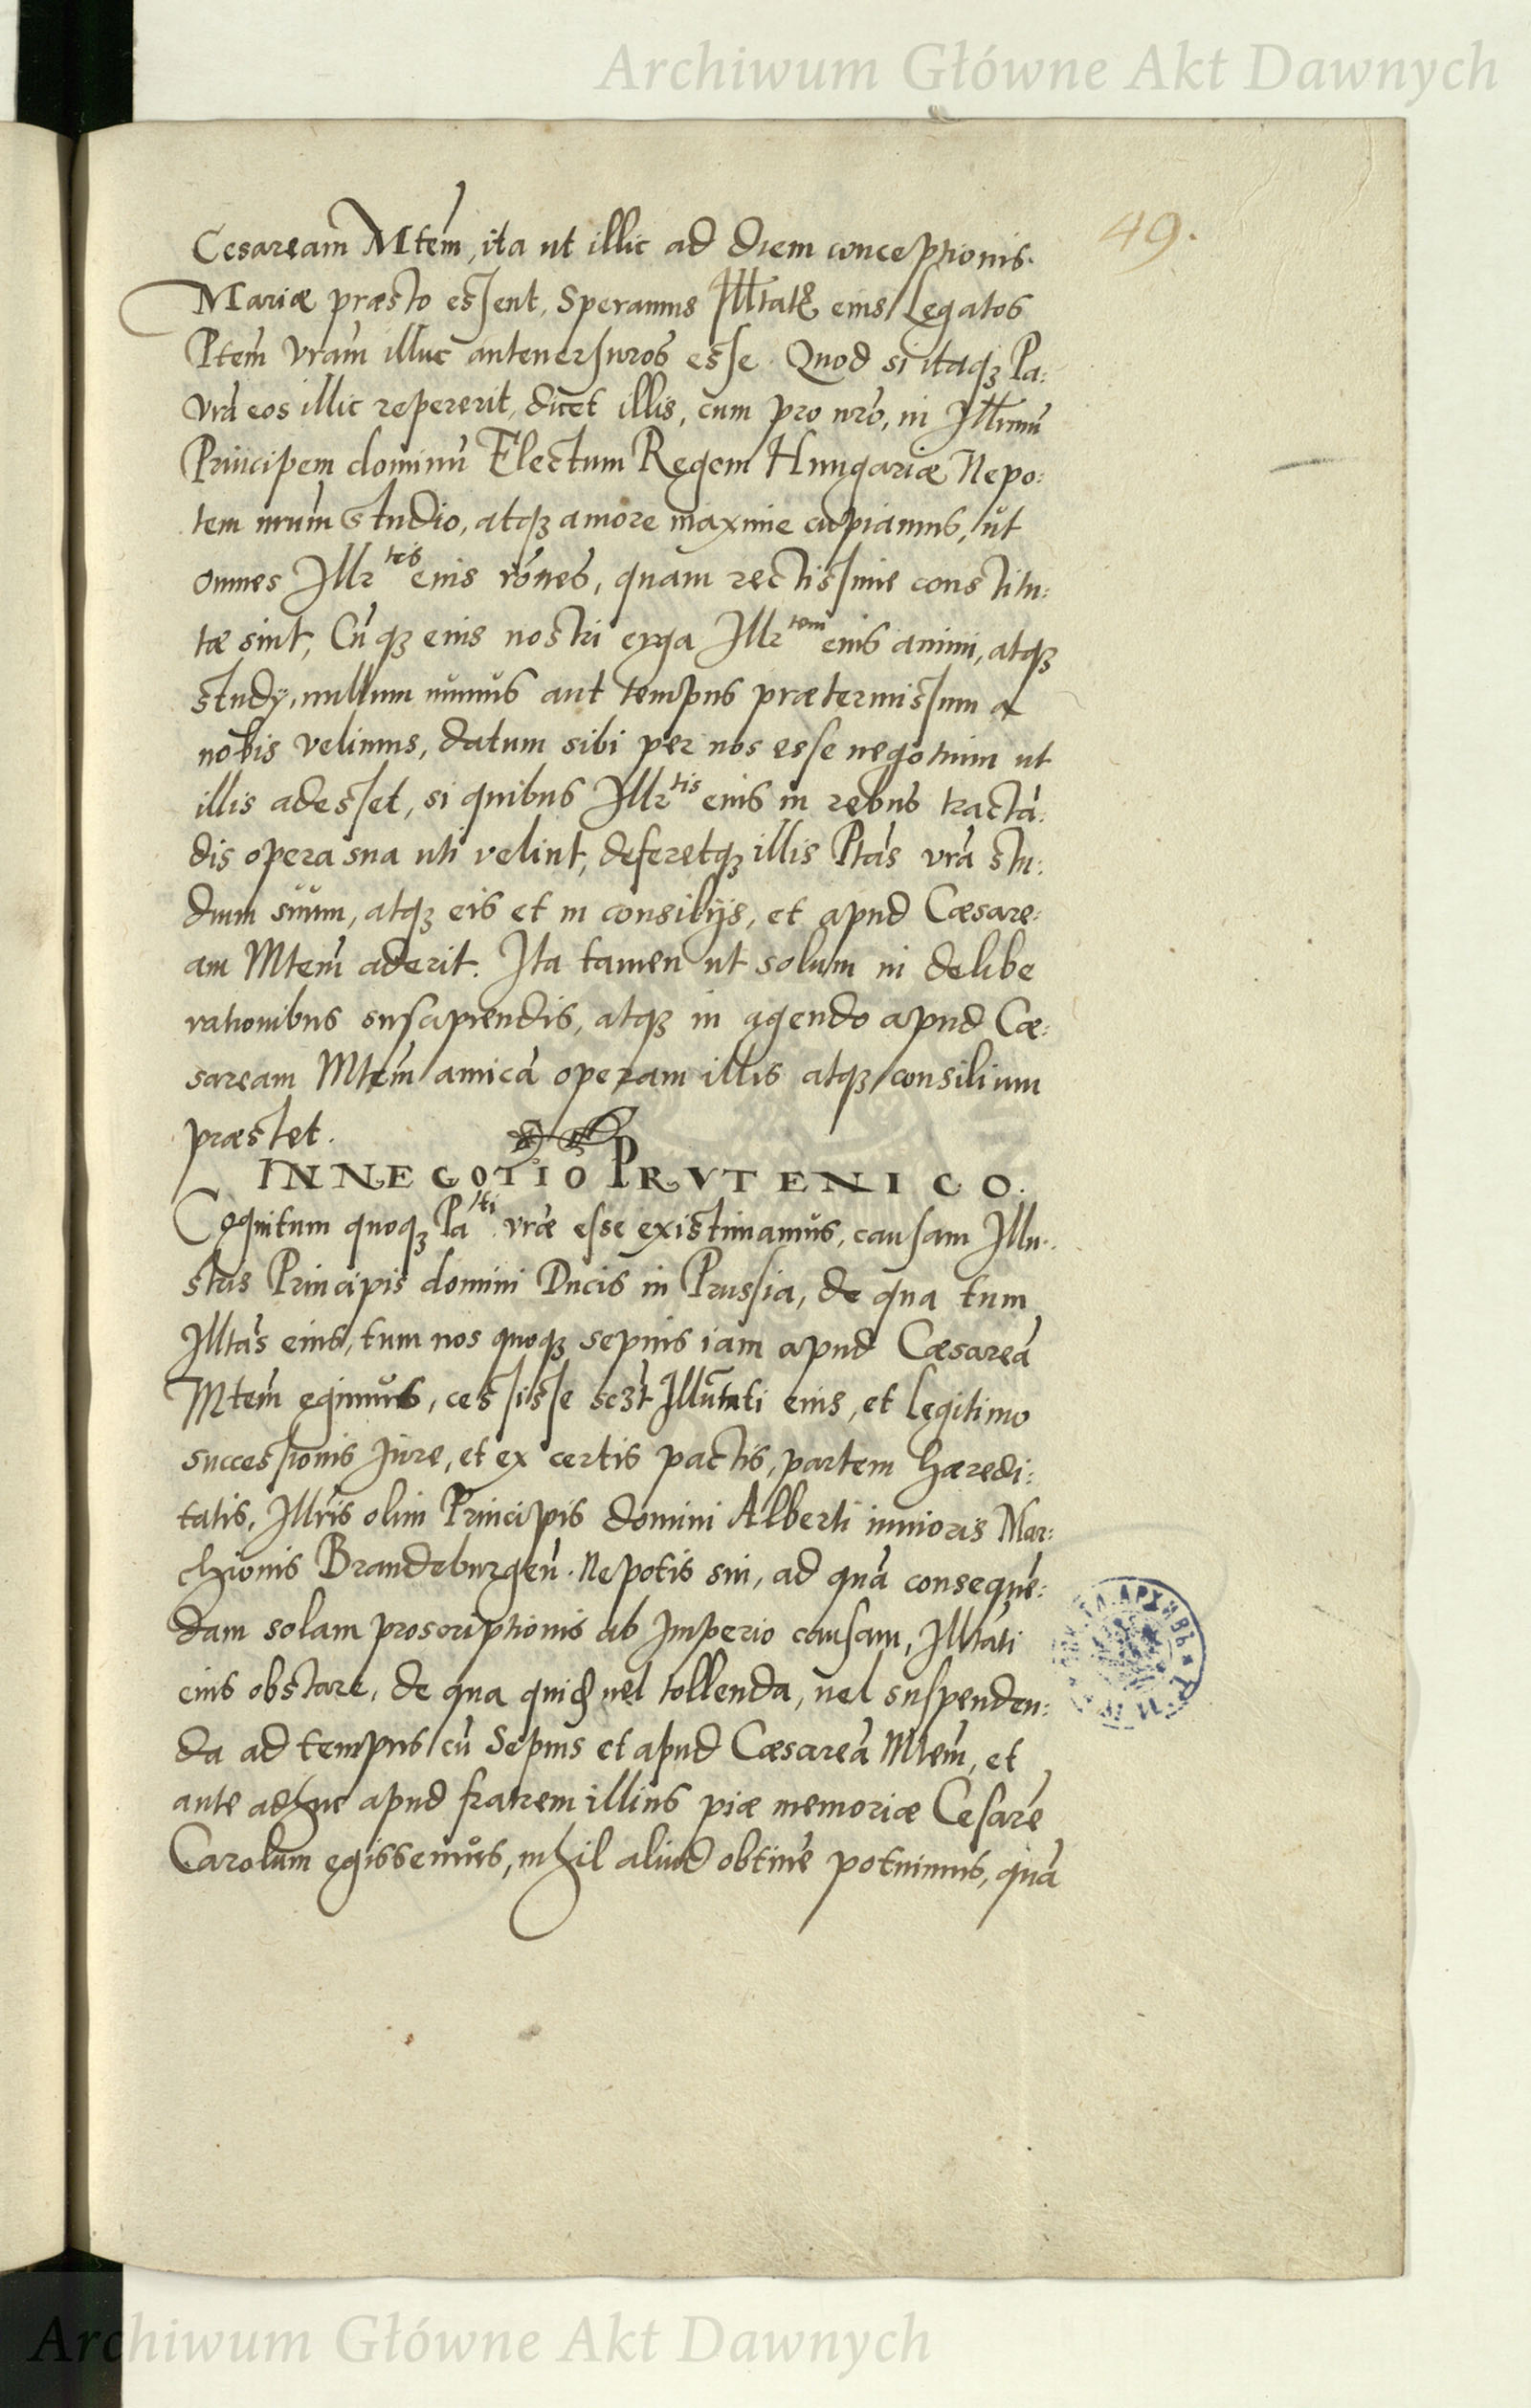 Archiwum Główne Akt Dawnych
49.
Cesaream Mtem, ita ut illic ad diem conceptionis.
Mariæ præsto essent, Speramus Illtatis eius Legatos
Ptem Vram illuc anteuersuros esse. Quod si itaqz Pa:
vra eos illic repererit, dicet illis, cum pro nro, in Illmu
Principem dominu Electum Regem Hungariæ Nepo:
tem nrum studio, atqz amore maxime cupiamus, ut
omnes Illr tis eius rones, quam rectissime constitu:
tæ sint, Cu qz eius nostri erga Illr tem eius animi, atqz
study, nullum munus aut tempus prætermissum a
nobis velimus, datum sibi per nos esse negotium ut
illis adesset, si quibus Illr tis eius in rebus tracta:
dis opera sua uti velint, deferetqz illis Ptas vra stu:
dium suum, atqz eis et in consilijs, et apud Cæsare:
am Mtem aderit. Ita tamen ut solum in delibe
rationibus suscipiendis, atqz in agendo apud Cæ:
saream Mtem amica operam illis atqz consilium
præstet.
IN NEGOTIO PRVTENICO.
Cognitum quoqz Pa ti vræ esse existimamus, causam Illu:
stris Principis domini Ducis in Prussia, de qua tum
Illtas eius, tum nos quoqz sepius iam apud Cæsarea
Mtem egimus, cessisse sczt Illutati eius, et legitimo
successionis Jure, et ex certis pactis, partem hæredi:
tatis, Illris olim Principis domini Alberti iunioris Mar:
chionis Brandeburgen. Nepotis sui, ad qua conseque:
dam solam proscriptionis ab Imperio causam, Illtati
eius obstare, de qua quid vel tollenda, vel suspenden:
da ad tempus cu Sepius et apud Cæsarea Mtem, et
ante adhuc apud fratrem illius piæ memoriæ Cesare
Carolum egissemus, nihil aliud obtine potuimus, qua
Archiwum Główne Akt Dawnych